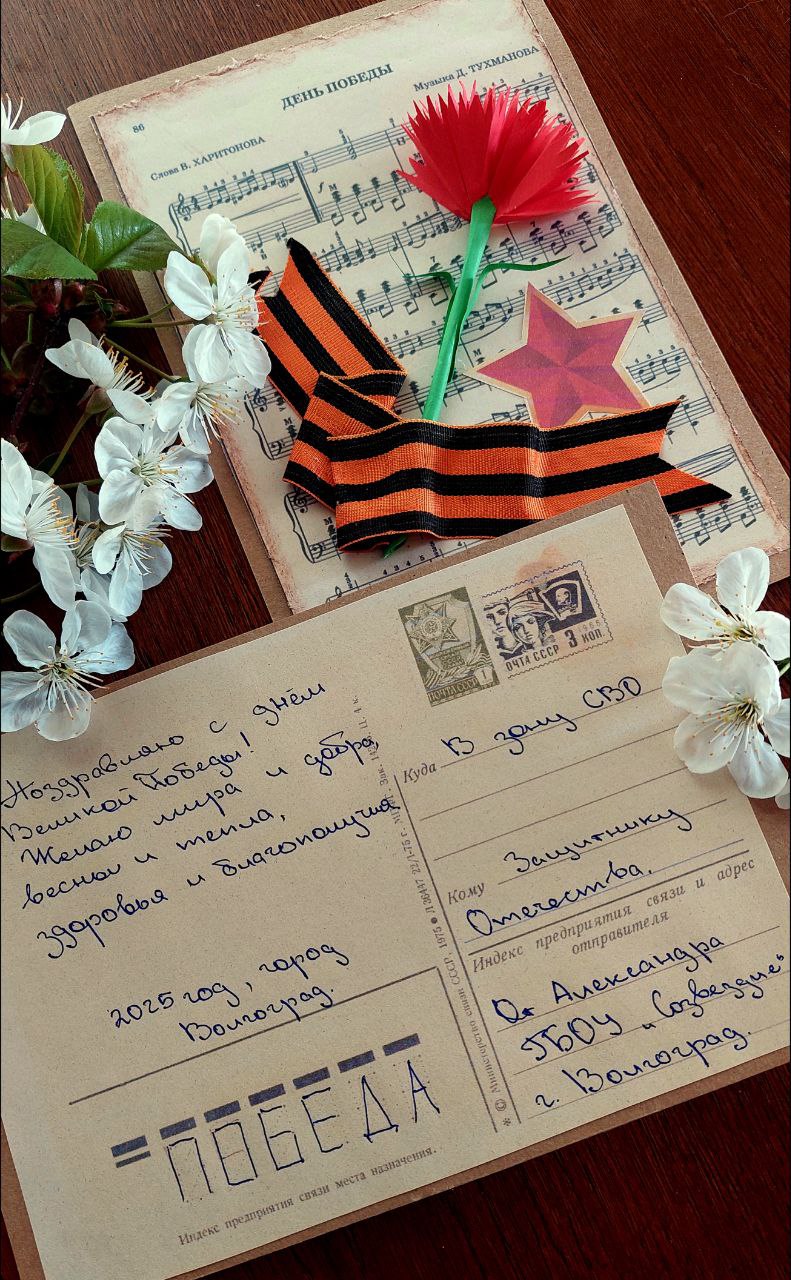 86
ДЕНЬ ПОБЕДЫ
Слова В. ХАРИТОНОВА
Музыка Д. ТУХМАНОВА
ПОЧТА СССР
1
1966
ПОЧТА СССР 3 КОП.
Поздравляю с днём
Великой Победы!
Желаю мира и добра,
весны и тепла,
здоровья и благополучия
2025 год, город
Волгоград.
Куда В зону СВО
Кому Защитнику
Отечества.
Индекс предприятия связи и адрес
отправителя
От Александра
ГБОУ „Созвездие“
г. Волгоград.
* © Министерство связи СССР, 1975
ПОБЕДА
Индекс предприятия связи места назначения.